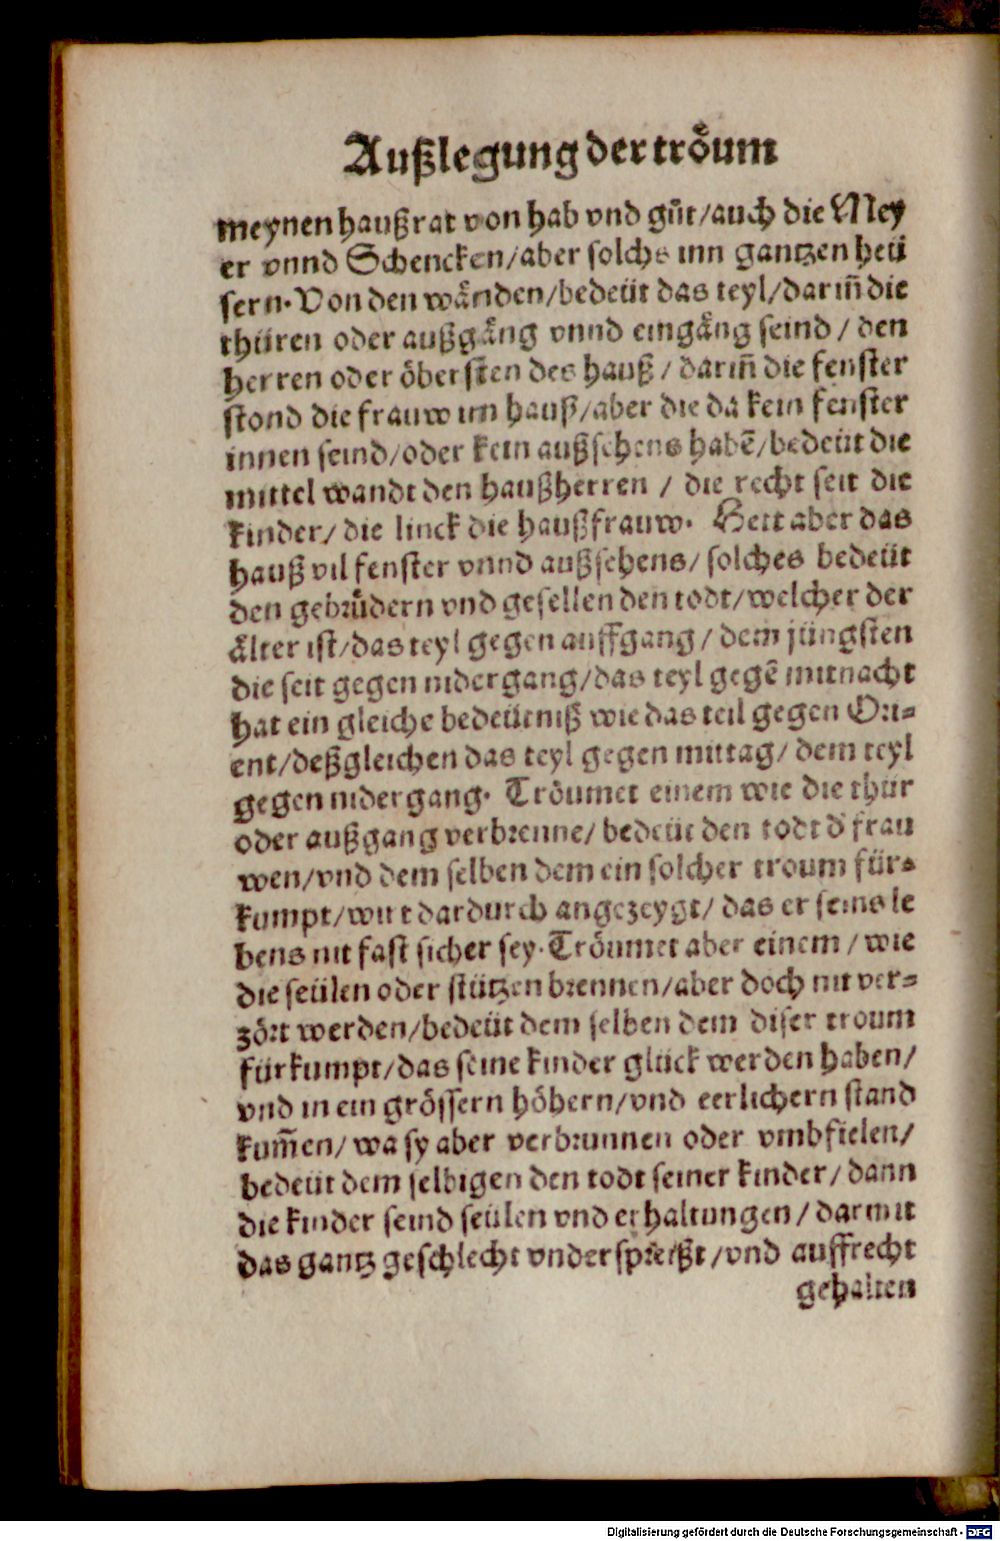 Außlegung der tröum
meynen haußrat von hab vnd gůt/auch die Mey
er vnnd Schencken/aber solchs inn gantzen heü
sern. Von den wänden/bedeüt das teyl/dariñ die
thüren oder außgäng vnnd eingäng seind / den
herren oder öbersten des hauß / dariñ die fenster
stond die frauw im hauß/aber die da kein fenster
innen seind/oder kein außsehens habē/bedeüt die
mittel wandt den haußherren / die recht seit die
kinder/ die linck die haußfrauw. Hett aber das
hauß vil fenster vnnd außsehens/ solches bedeüt
den gebrůdern vnd gesellen den todt/welcher der
älter ist/das teyl gegen auffgang / dem jüngsten
die seit gegen nidergang/das teyl gegē mitnacht
hat ein gleiche bedeütniß wie das teil gegen Ori-
ent/deßgleichen das teyl gegen mittag/ dem teyl
gegen nidergang. Tröumet einem wie die thür
oder außgang verbrenne/ bedeüt den todt d' frau
wen/vnd dem selben dem ein solcher troum für-
kumpt/wirt dardurch angezeygt/ das er seins le
bens nit fast sicher sey. Tröumet aber einem / wie
die seülen oder stützen brennen/aber doch nit ver-
zört werden/bedeüt dem selben dem diser troum
fürkumpt/das seine kinder glück werden haben/
vnd in ein grössern höhern/vnd eerlichern stand
kum̃en/ wa sy aber verbrunnen oder vmbfielen/
bedeüt dem selbigen den todt seiner kinder/ dann
die kinder seind seülen vnd erhaltungen / darmit
das gantz geschlecht vnderspreißt/vnd auffrecht
gehalten
Digitalisierung gefördert durch die Deutsche Forschungsgemeinschaft - DFG